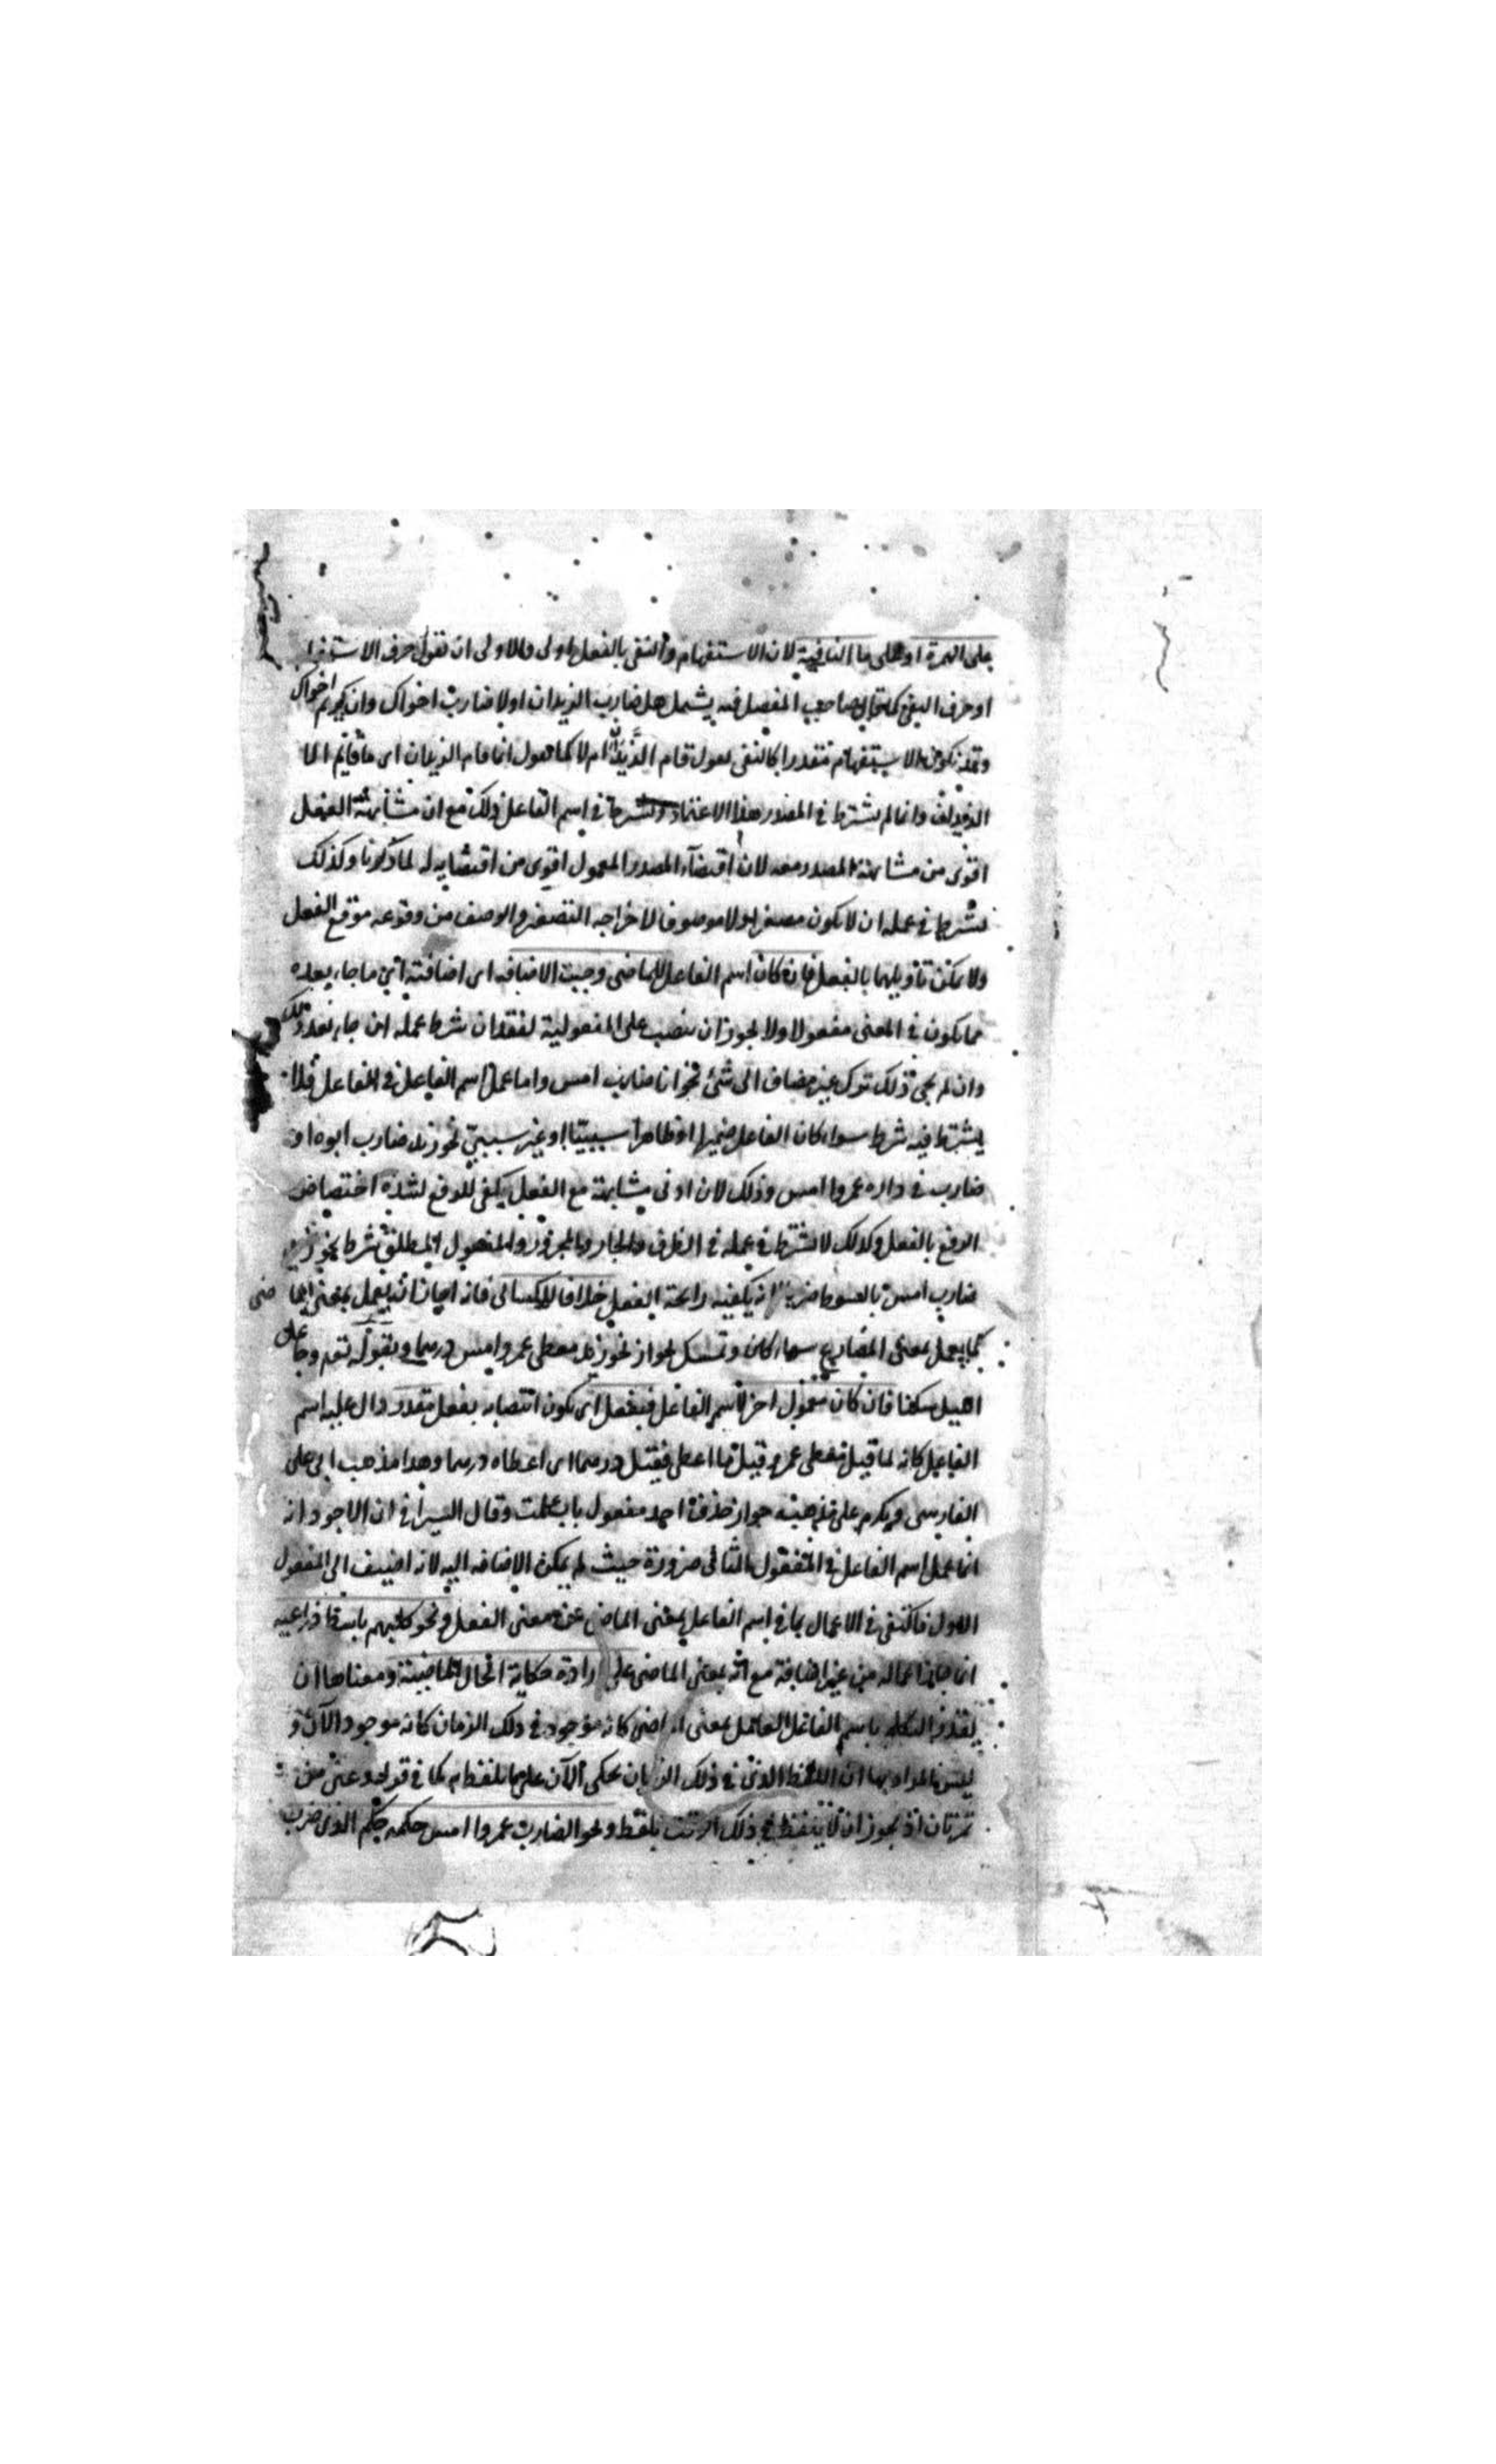 على الهمزة او على ما النافية لان الاستفهام والنفى بالفعل اولى والاولى ان تقول حرف الاستفهام
او حرف النفى كما قال صاحب المفصل فيه يشمل هل ضارب الزيدان او لا ضارب اخواك وان يكرم اخواك
وقد يكون الاستفهام مقدرا كالنفى تقول قام الزيدان ام لا كما تقول انما قام الزيدان اى ما قائم الا
الزيدان وانما لم يشترط فى المصدر هذا الاعتماد ويشترط فى اسم الفاعل ذلك مع ان مشابهته الفعل
اقوى من مشابهة المصدر معه لان اقتضاء المصدر المعمول اقوى من اقتضايه له لما ذكرنا وكذلك
يشترط فى عمله ان لا يكون مصغرا ولا موصوفا لاخراجه التصغير والوصف من وقوعه موقع الفعل
ولا يمكن تأويلهما بالفعل فان كان اسم الفاعل للماضى وجبت الاضافه اى اضافته الى ما جاء بعده
مما يكون فى المعنى مفعولا ولا يجوز ان ينصب على المفعولية لفقدان شرط عمله ان جاء بعد ذلك
وان لم يجئ ذلك ترك غير مضاف الى شئ نحو انا ضارب امس واما عمل اسم الفاعل فى الفاعل فلا
يشترط فيه شرط سواء كان الفاعل ضميرا او ظاهرا سببيا او غير سببى نحو زيد ضارب ابوه او
ضارب فى داره عمروا امس وذلك لان ادنى مشابهة مع الفعل يكفى للرفع لشدة اختصاص
الرفع بالفعل وكذلك لا يشترط فى عمله فى الظرف والجار والمجرور والمفعول المطلق شرط نحو زيد
ضارب امس بالسوط ضربا اذ يكفيه رايحة الفعل خلافا للكسائى فانه اجاز ان يعمل بمعنى الماضى
كما يعمل بمعنى المضارع سواء كان وتمسك بجواز نحو زيد معطى عمرو امس درهما وبقوله تعه وجاعل
الليل سكنا فان كان معمول اخر لاسم الفاعل فبفعل اى يكون انتصابه بفعل مقدر دال عليه اسم
الفاعل كانه لما قيل معطى عمرو قيل ما اعطى فقيل درهما اى اعطاه درهما وهذا مذهب ابى على
الفارسى ويلزم على مذهبه جواز حذف احد مفعول باب علمت وقال السيرافى ان الاجود انه
انما عمل اسم الفاعل فى المفعول الثانى ضرورة حيث لم يمكن الاضافه اليه لانه اضيف الى المفعول
الاول فاكتفى فى الاعمال بما فى اسم الفاعل بمعنى الماضى من معنى الفعل ونحو كلبهم باسط ذراعيه
انما جاز اعماله من غير اضافة مع انه بمعنى الماضى على ارادة حكاية الحال الماضية ومعناها ان
يقدر المتكلم باسم الفاعل العامل بمعنى الماضى كانه موجود فى ذلك الزمان كانه موجود الآن و
ليس المراد بها ان اللفظ الذى فى ذلك الزمان يحكى الآن على ما يلفظ به كما فى قوله دعنى من
تمرتان اذ يجوز ان لا يتلفظ فى ذلك الوقت بلفظ ونحو الضارب عمروا امس حكمه حكم الذى ضرب